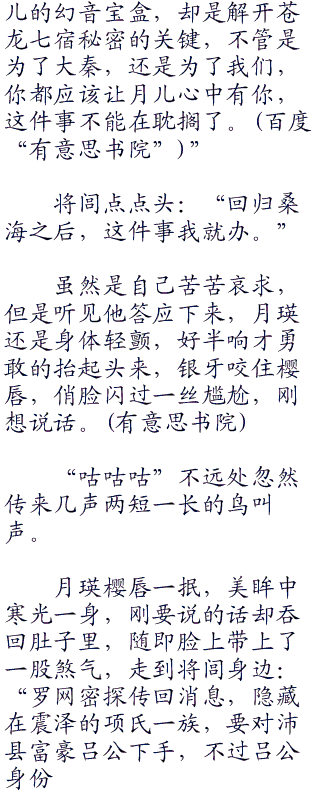 儿的幻音宝盒，却是解开苍
龙七宿秘密的关键，不管是
为了大秦，还是为了我们，
你都应该让月儿心中有你，
这件事不能在耽搁了。(百度
“有意思书院”)”
将闾点点头：“回归桑
海之后，这件事我就办。”
虽然是自己苦苦哀求，
但是听见他答应下来，月瑛
还是身体轻颤，好半响才勇
敢的抬起头来，银牙咬住樱
唇，俏脸闪过一丝尴尬，刚
想说话。(有意思书院)
“咕咕咕”不远处忽然
传来几声两短一长的鸟叫
声。
月瑛樱唇一抿，美眸中
寒光一身，刚要说的话却吞
回肚子里，随即脸上带上了
一股煞气，走到将闾身边：
“罗网密探传回消息，隐藏
在震泽的项氏一族，要对沛
县富豪吕公下手，不过吕公
身份